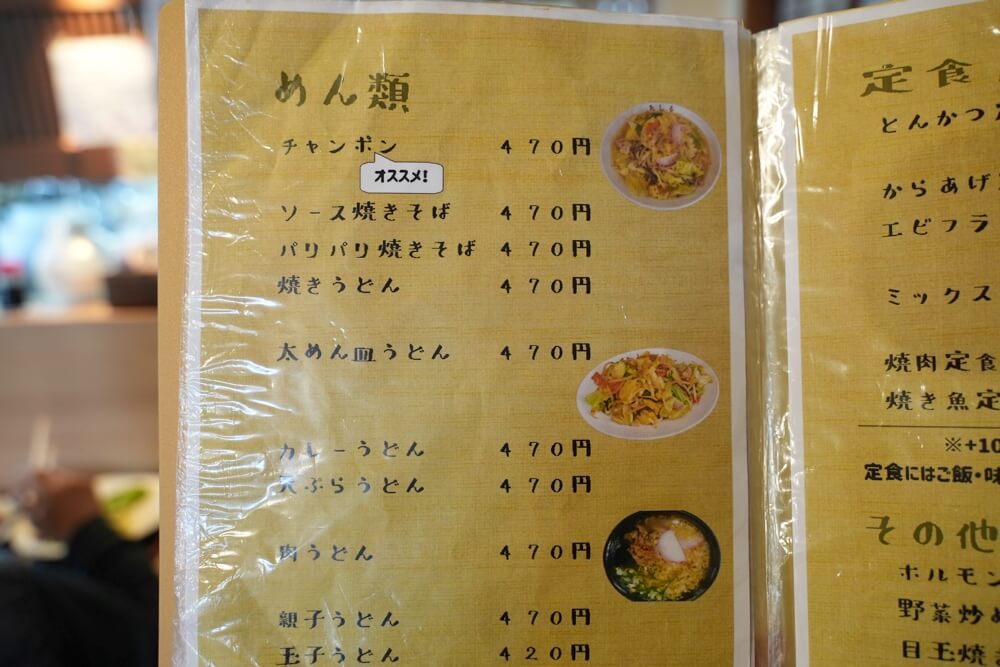 めん類
チャンポン 470円
オススメ!
ソース焼きそば 470円
パリパリ焼きそば 470円
焼きうどん 470円
太めん皿うどん 470円
カレーうどん 470円
天ぷらうどん 470円
肉うどん 470円
親子うどん 470円
玉子うどん 420円
定食
とんかつ
からあげ
エビフラ
ミックス
焼肉定食
焼き魚定
※+10
定食にはご飯・味
その他
ホルモン
野菜炒め
目玉焼